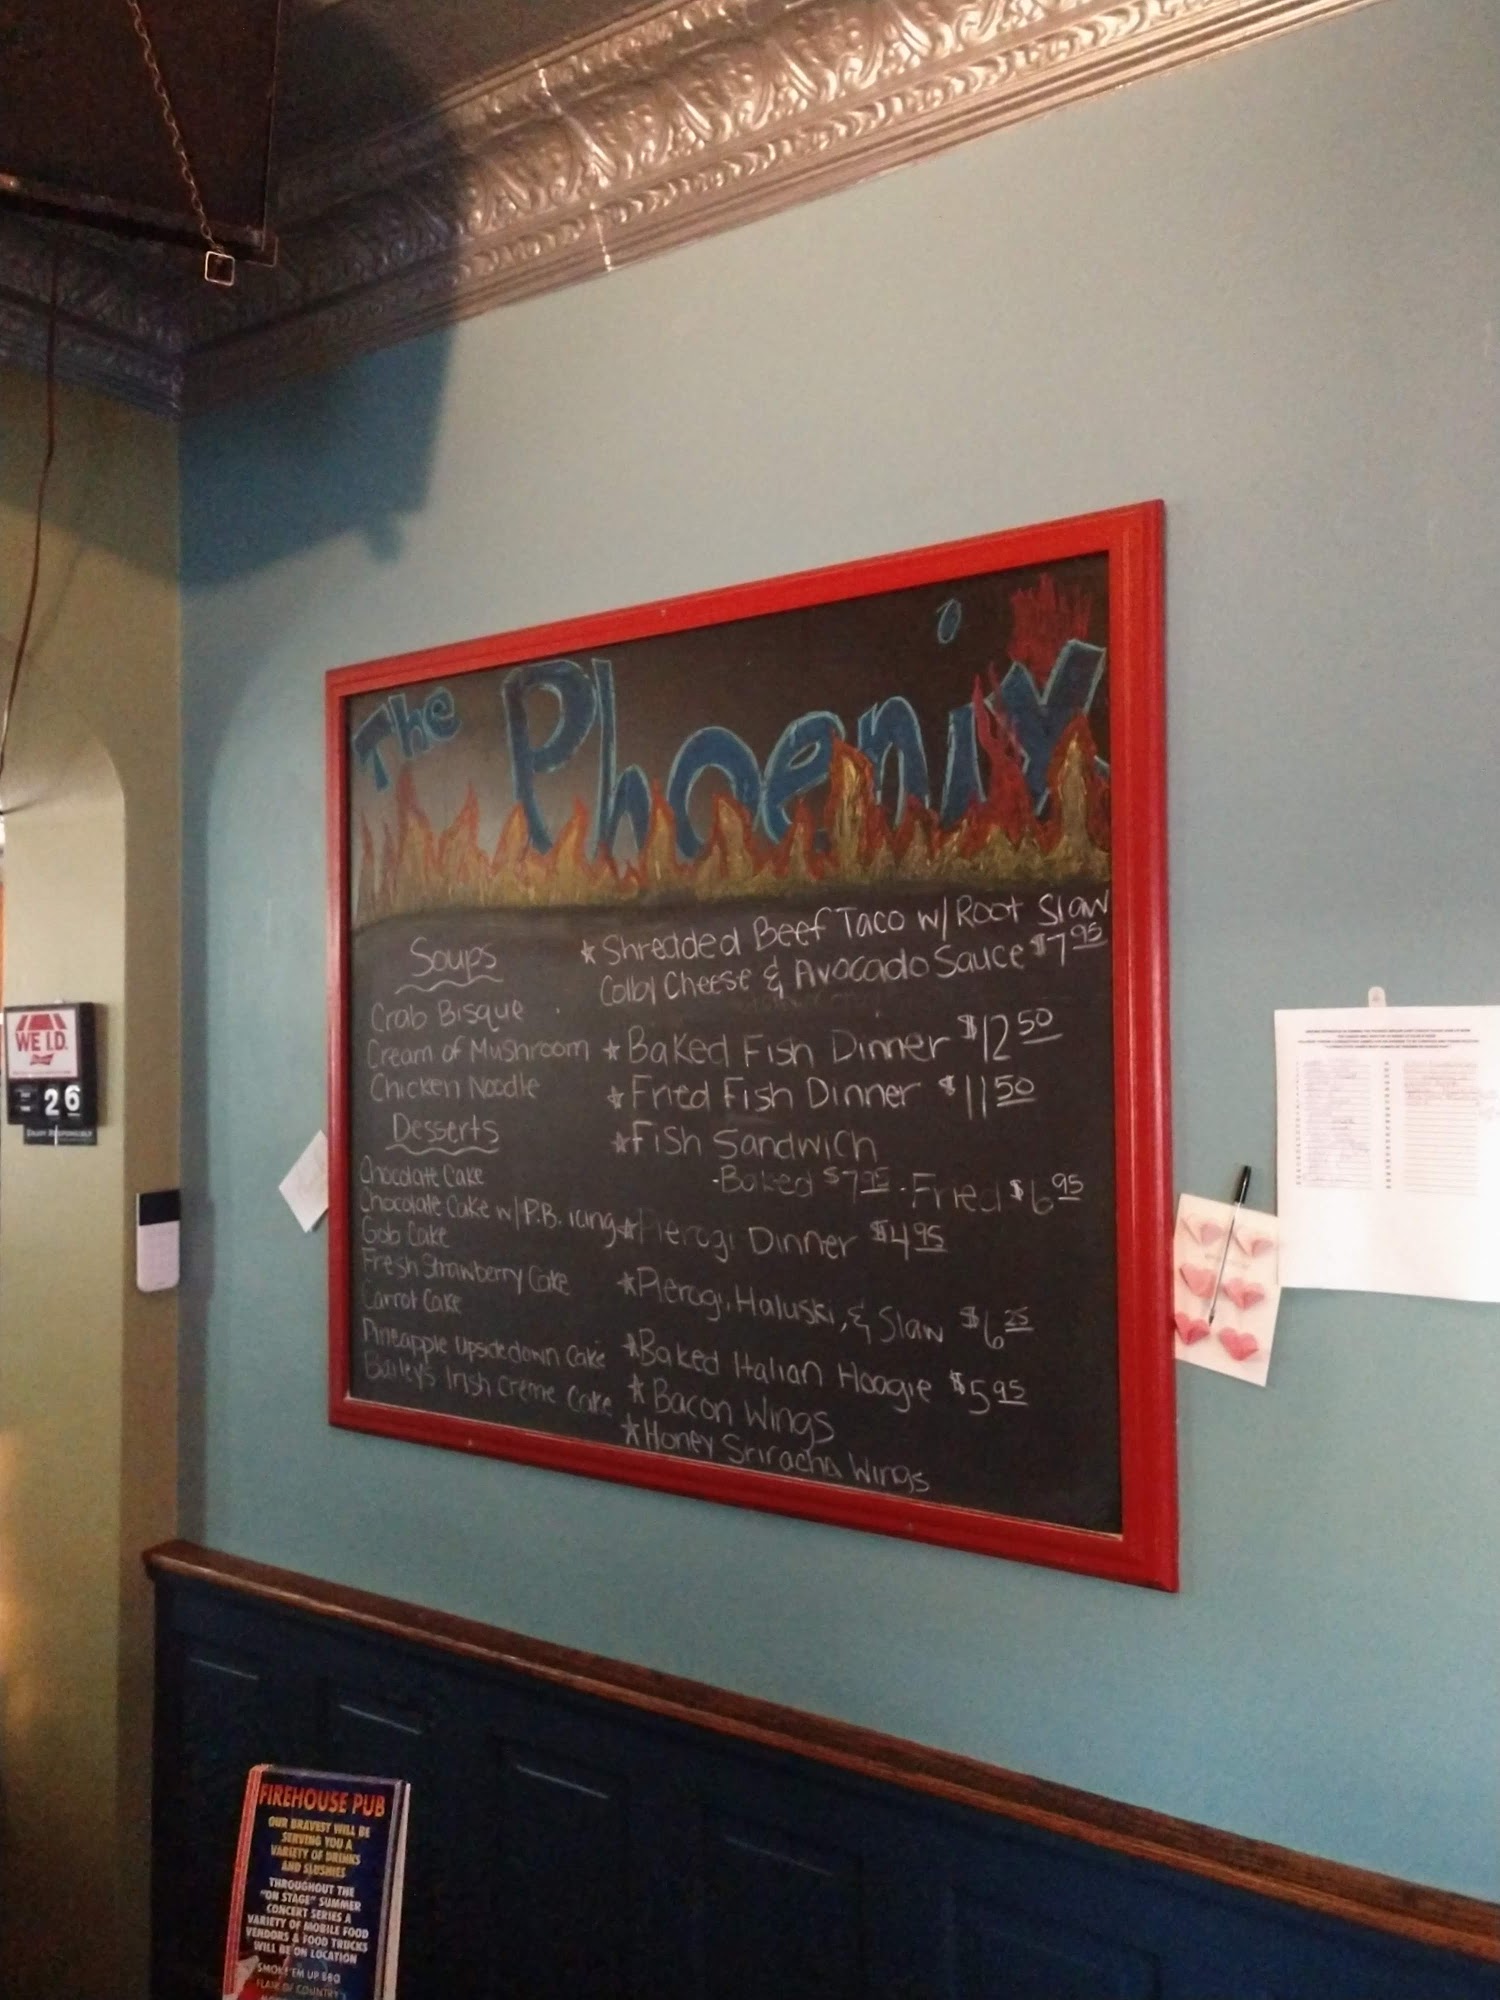 The Phoenix
Soups
Crab Bisque
Cream of Mushroom
Chicken Noodle
Desserts
Chocolate Cake
Chocolate Cake w/P.B. icing
Gob Cake
Fresh Strawberry Cake
Carrot Cake
Pineapple Upsidedown Cake
Bailey's Irish Creme Cake
★Shredded Beef Taco w/Root Slaw
Colby Cheese & Avocado Sauce $7.95
★Baked Fish Dinner $12.50
★Fried Fish Dinner $11.50
★Fish Sandwich
-Baked $7.95 -Fried $6.95
★Pierogi Dinner $4.95
★Pierogi, Haluski, & Slaw $6.25
★Baked Italian Hoagie $5.95
★Bacon Wings
★Honey Sriracha Wings
WE I.D.
26
ENJOY RESPONSIBLY
FIREHOUSE PUB
OUR BRAVEST WILL BE
SERVING YOU A
VARIETY OF DRINKS
AND SLUSHIES
THROUGHOUT THE
"ON STAGE" SUMMER
CONCERT SERIES A
VARIETY OF MOBILE FOOD
VENDORS & FOOD TRUCKS
WILL BE ON LOCATION
SMOK'EM UP BBQ
OF COUNTRY